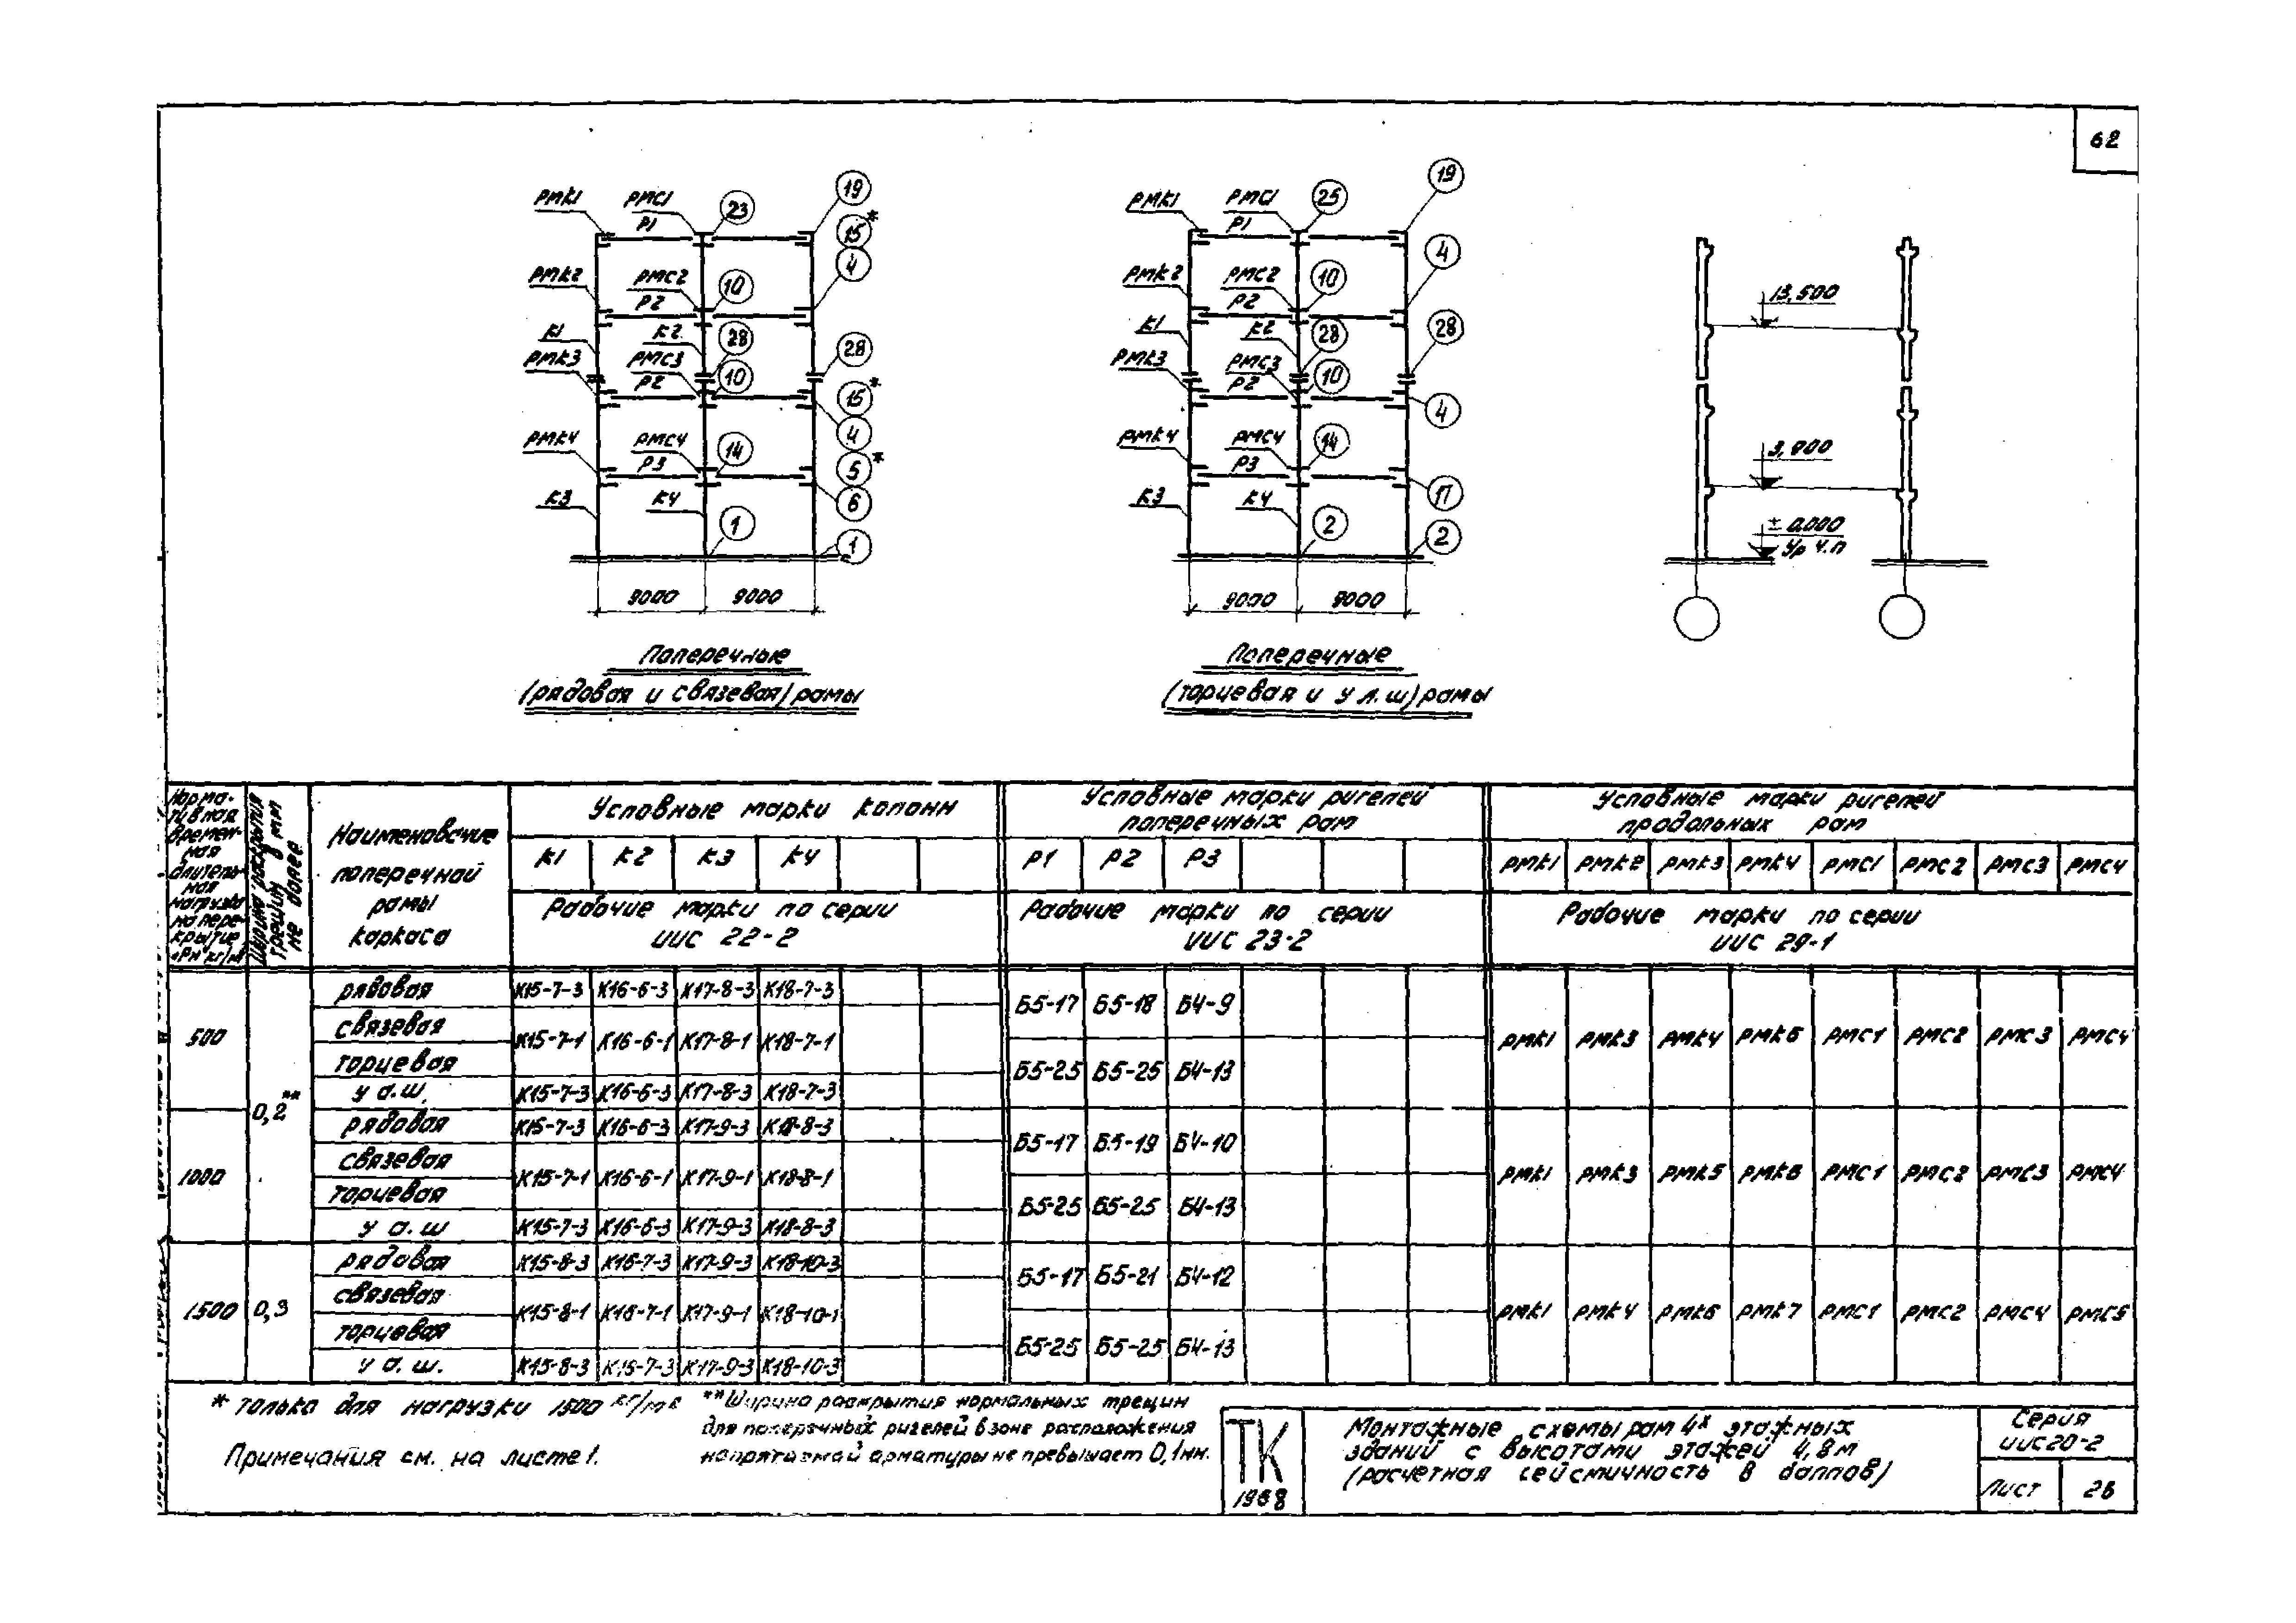 62
РМК1 РМС1 23 19
Р1 15*
4
РМК2 РМС2 10
Р2
К1 К2 28 28
РМК3 РМС3 10
Р2 15*
4
РМК4 РМС4 14
Р3 5*
6
К3 К4 1 1
9000 9000
Поперечные
(рядовая и связевая) рамы
РМК1 РМС1 25 19
Р1
4
РМК2 РМС2 10
Р2
К1 К2 28 28
РМК3 РМС3 10
Р2
4
РМК4 РМС4 14
Р3
17
К3 К4 2 2
9000 9000
Поперечные
(торцевая и у а.ш) рамы
13,500
± 0.000
Ур ч.п
Норма-
тивная
времен-
ная
длитель-
ная
нагрузка
на пере-
крытие
"Рн" кг/м
Ширина раскрытия
трещин в мм
не более
Наименование
поперечной
рамы
каркаса
Условные марки колонн
К1 К2 К3 К4
Рабочие марки по серии
ИИС 22-2
Условные марки ригелей
поперечных рам
Р1 Р2 Р3
Рабочие марки по серии
ИИС 23-2
Условные марки ригелей
продольных рам
РМК1 РМК2 РМК3 РМК4 РМС1 РМС2 РМС3 РМС4
Рабочие марки по серии
ИИС 29-1
500
0,2**
рядовая К15-7-3 К16-6-3 К17-8-3 К18-7-3
Б5-17 Б5-18 Б4-9
связевая
К15-7-1 К16-6-1 К17-8-1 К18-7-1
РМК1 РМК3 РМК4 РМК6 РМС1 РМС2 РМС3 РМС4
торцевая
Б5-25 Б5-25 Б4-13
у а.ш. К15-7-3 К16-6-3 К17-8-3 К18-7-3
1000
рядовая К15-7-3 К16-6-3 К17-9-3 К18-8-3
Б5-17 Б5-19 Б4-10
связевая
К15-7-1 К16-6-1 К17-9-1 К18-8-1
РМК1 РМК3 РМК5 РМК6 РМС1 РМС2 РМС3 РМС4
торцевая
Б5-25 Б5-25 Б4-13
у а.ш К15-7-3 К16-6-3 К17-9-3 К18-8-3
1500 0,3
рядовая К15-8-3 К16-7-3 К17-9-3 К18-10-3
Б5-17 Б5-21 Б4-12
связевая
К15-8-1 К16-7-1 К17-9-1 К18-10-1
РМК1 РМК4 РМК6 РМК7 РМС1 РМС2 РМС4 РМС5
торцевая
Б5-25 Б5-25 Б4-13
у а.ш. К15-8-3 К15-7-3 К17-9-3 К18-10-3
* только для нагрузки 1500 кг/м2
Примечания см. на листе 1.
** Ширина раскрытия нормальных трещин
для поперечных ригелей в зоне расположения
напрягаемой арматуры не превышает 0,1мм.
ТК
1968
Монтажные схемы рам 4х этажных
зданий с высотами этажей 4,8м
(расчетная сейсмичность 8 баллов)
Серия
ИИС20-2
Лист 26